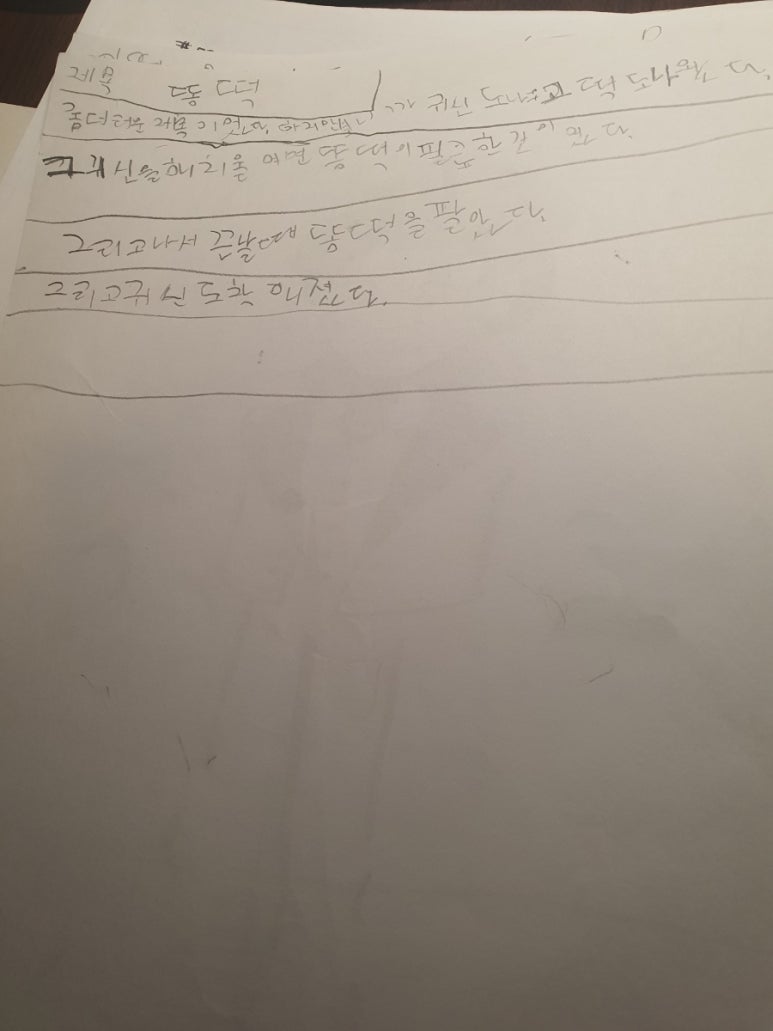 제목 똥 떡
좀 더러운 제목 이었다. 하지만
귀신도 나오고 떡도 나온다.
그 귀신을 해치울 려면 똥 떡이 필요한 것 이 였다.
그리고 나서 큰날에 똥떡을 팔았다.
그리고 귀신 도 착 해졌다.